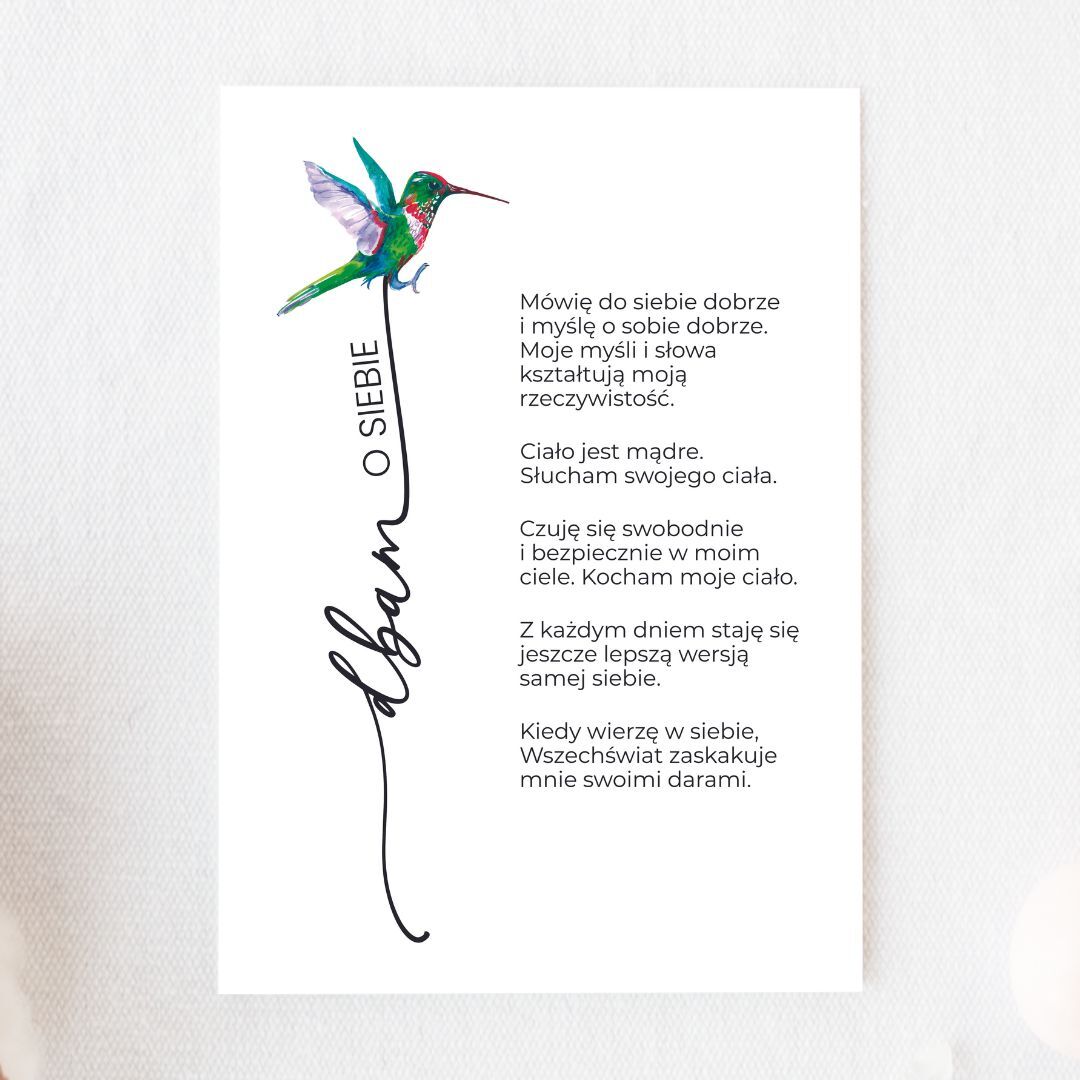 dbam O SIEBIE
Mówię do siebie dobrze
i myślę o sobie dobrze.
Moje myśli i słowa
kształtują moją
rzeczywistość.
Ciało jest mądre.
Słucham swojego ciała.
Czuję się swobodnie
i bezpiecznie w moim
ciele. Kocham moje ciało.
Z każdym dniem staję się
jeszcze lepszą wersją
samej siebie.
Kiedy wierzę w siebie,
Wszechświat zaskakuje
mnie swoimi darami.